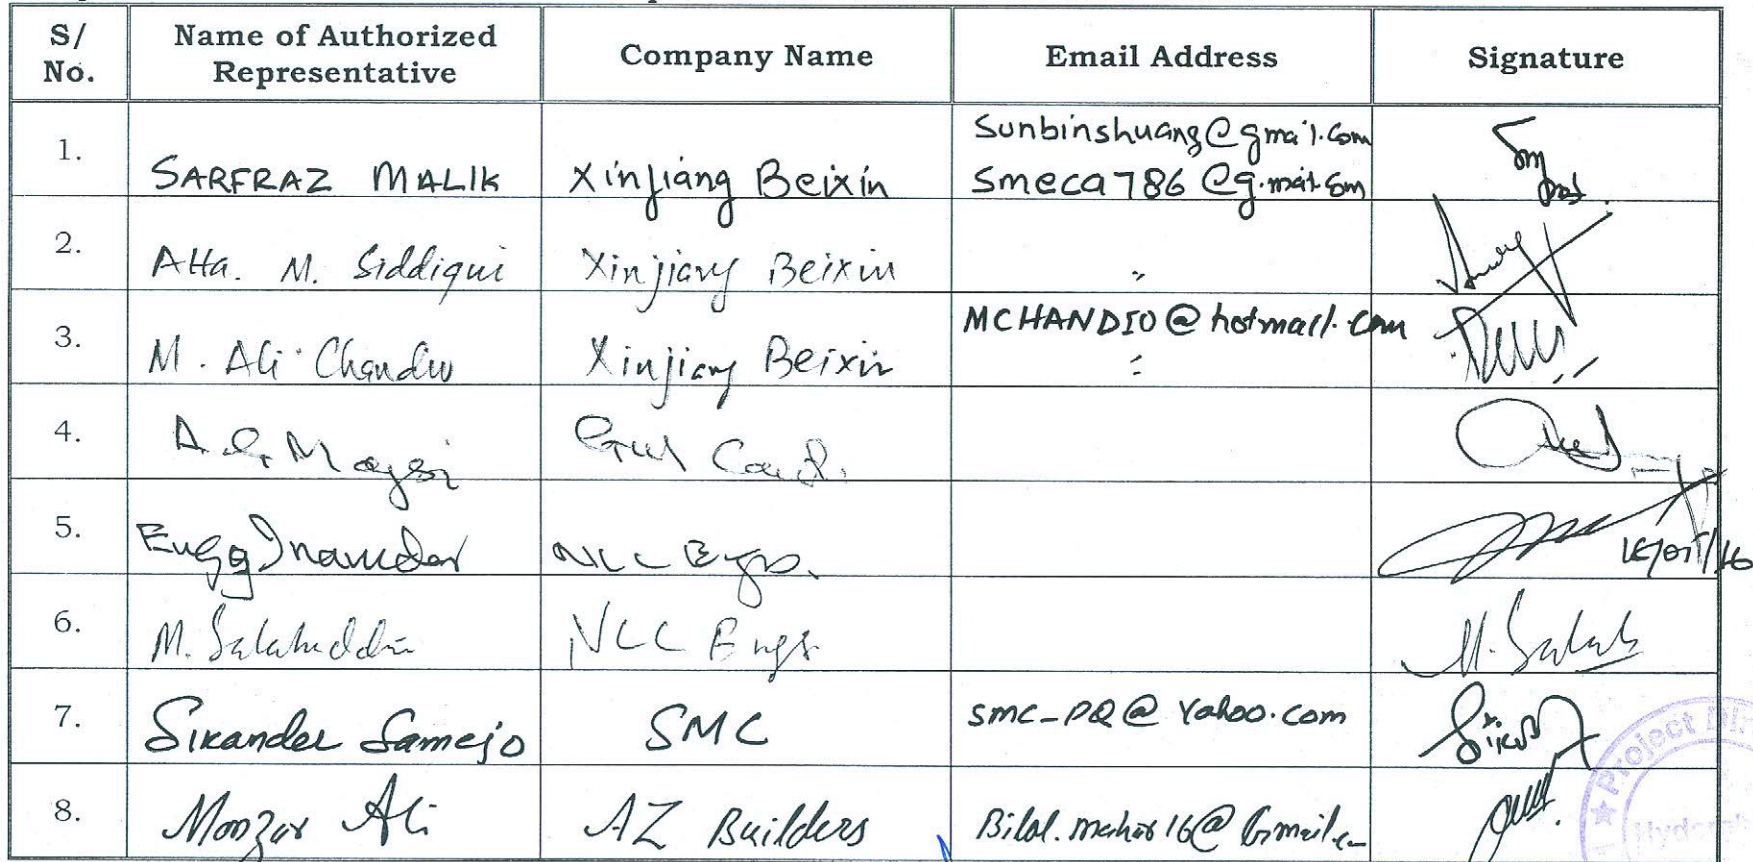 S/
No.
Name of Authorized
Representative
Company Name
Email Address
Signature
1.
SARFRAZ MALIK
Xinjiang Beixin
Sunbinshuang@gmail.com
Smeca786@g.mail.com
2.
Atta. M. Siddiqui
Xinjiang Beixin
"
3.
M. Ali Chandio
Xinjiang Beixin
MCHANDIO@hotmail.com
"
4.
Magsi
Gul
5.
Engg Inamdar
NCC Engs.
6.
M. Salahuddin
NCC Engs
M. Salah
7.
Sikander Samejo
SMC
smc_PQ@Yahoo.com
8.
Manzar Ali
AZ Builders
Bilal.mahar16@Gmail.
Project